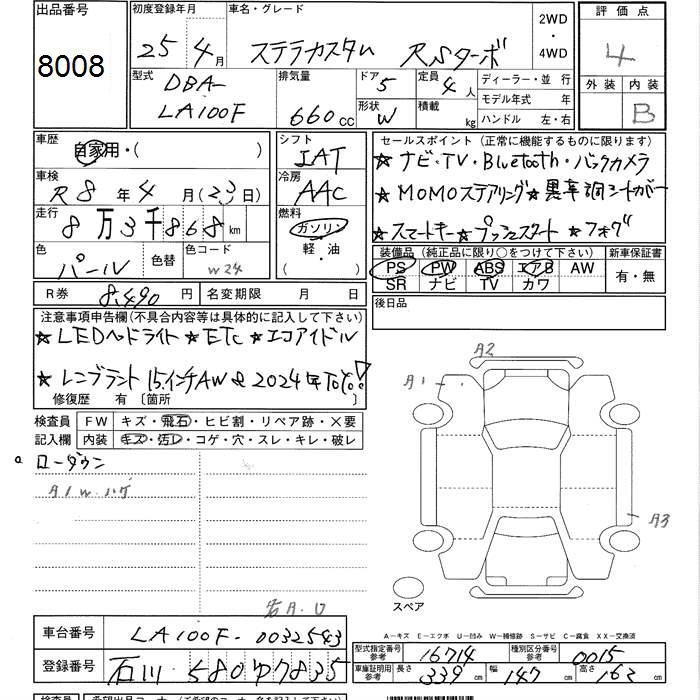 出品番号
8008
初度登録年月
25 年 4 月
車名・グレード
ステラカスタム RSターボ
2WD
・
4WD
評価点
4
外装 内装
B
型式
DBA-
LA100F
排気量
660 cc
ドア 5
形状 W
定員 4 人
積載 kg
ディーラー・並行
モデル年式 年
ハンドル 左・右
車歴
自家用・( )
車検
R8 年 4 月 (23 日)
走行
8万3千868 km
色
パール
色替
色コード
W24
R券 8,490 円
名変期限 月 日
シフト
IAT
冷房
AAC
燃料
ガソリン
軽・油
( ・ )
セールスポイント (正常に機能するものに限ります)
★ナビ・TV・Bluetooth・バックカメラ
★MOMOステアリング★黒革調シートカバー
★スマートキー★プッシュスタート★フォグ
装備品 (純正品に限り○をつけて下さい)
新車保証書
PS PW ABS エアB AW
SR ナビ TV カワ
有・無
後日品
注意事項申告欄(不具合内容等は具体的に記入して下さい)
★LEDヘドライト★ETC★エコアイドル
★レンブラント15インチAW
修復歴 有 〔箇所 〕
検査員
記入欄
FW キズ・飛石・ヒビ割・リペア跡・×要
内装 キズ・汚レ・コゲ・穴・スレ・キレ・破レ
a ローダウン
A1 W.ハゲ
A2
A1
A3
スペア
右A.U
A－キズ E－エクボ U－凹み W－補修跡 S－サビ C－腐食 XX－交換済
車台番号 LA100F-0032543
登録番号 石川 580 ゆ 7835
型式指定番号
参考
16714
種別区分番号
参考
0015
車庫証明用
参考
長さ 339 cm
幅 147 cm
高さ 162 cm